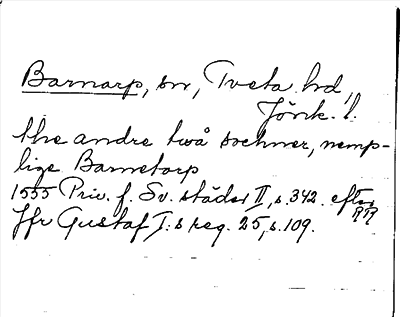 Barnarp, sn, Tveta hd,
Jönk. l.
the andre twå sochner, nemp-
lige Barnetorp
1555 Priv. f. Sv. städer II, s. 342. efter RR
Jfr Gustaf I:s reg. 25, s. 109.